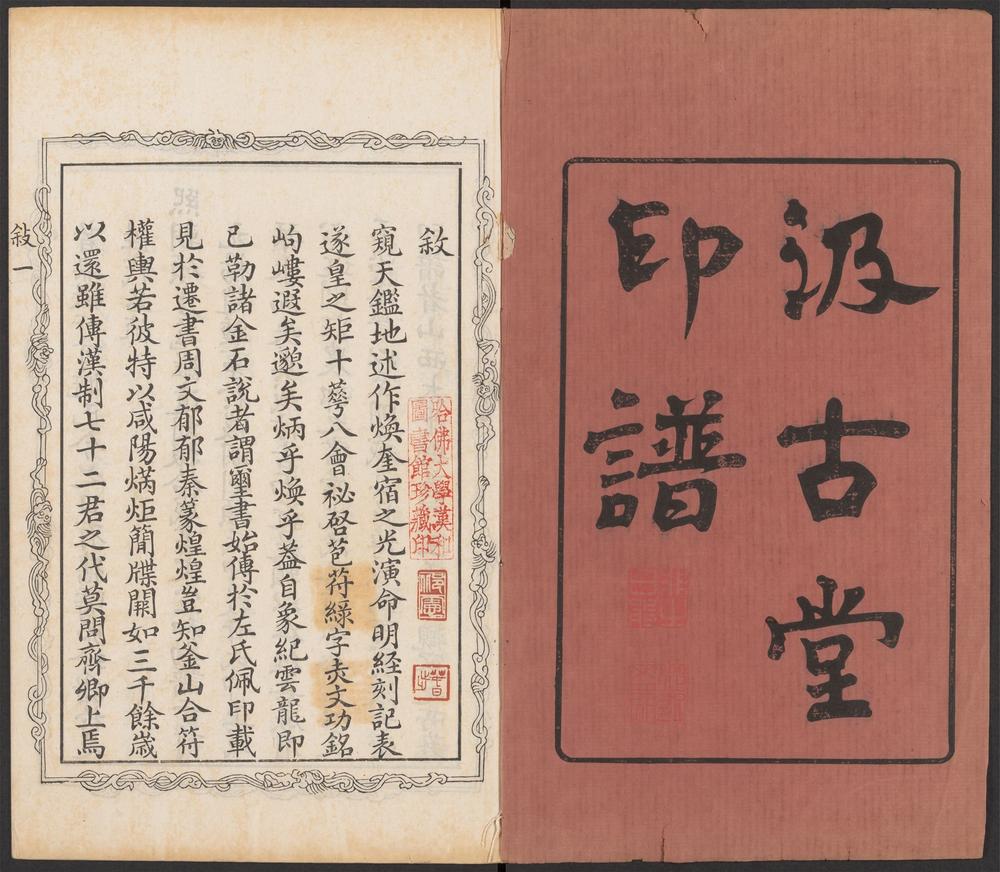 汲古堂
印譜
敘
窺天鑑地述作煥奎宿之光演命明經刻記表
遂皇之矩十蕚八會祕啓苞符綠字赤文功銘
岣嶁遐矣邈矣炳乎煥乎葢自象紀雲龍即
已勒諸金石說者謂璽書始傳於左氏佩印載
見於遷書周文郁郁秦篆煌煌豈知釜山合符
權輿若彼特以咸陽焫炬簡牒闕如三千餘歲
以還雖傳漢制七十二君之代莫問齊卿上焉
哈佛大學漢和
圖書館珍藏印
敘一